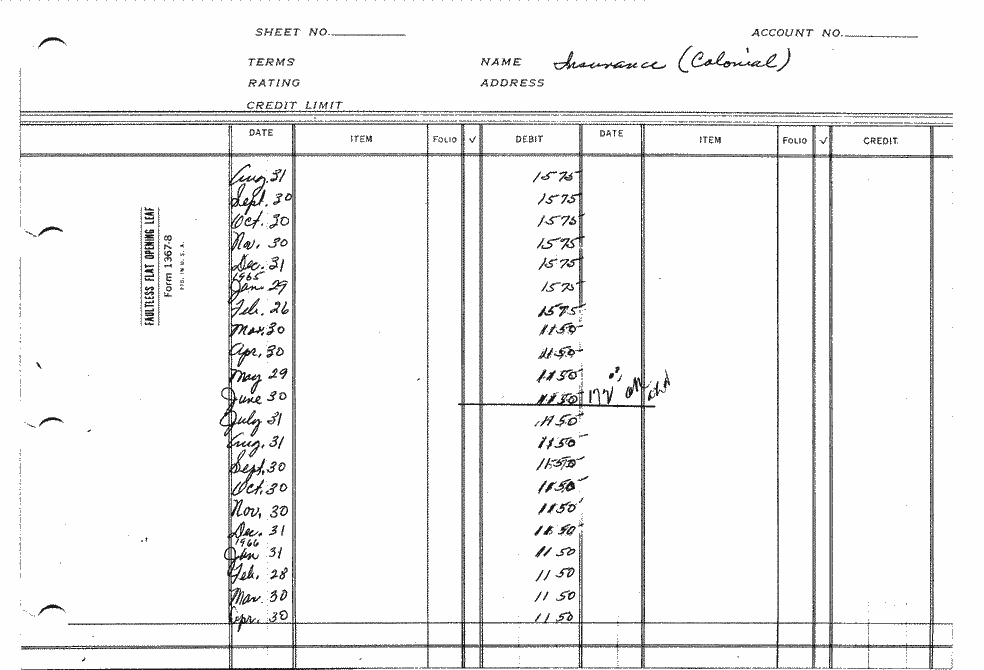 SHEET NO. ACCOUNT NO.
TERMS NAME Insurance (Colonial)
RATING ADDRESS
CREDIT LIMIT
DATE ITEM FOLIO √ DEBIT DATE ITEM FOLIO √ CREDIT
Aug. 31 15 75
Sept. 30 15 75
Oct. 30 15 75
Nov. 30 15 75
Dec. 31 15 75
1965
Jan. 29 15 75
Feb. 26 15 75
Mar. 30 11 50
Apr. 30 11 50
May 29 11 50
June 30 11 50 172
July 31 11 50
Aug. 31 11 50
Sept. 30 11 50
Oct. 30 11 50
Nov. 30 11 50
Dec. 31 11 50
1966
Jan 31 11 50
Feb. 28 11 50
Mar. 30 11 50
Apr. 30 11 50
FAULTLESS FLAT OPENING LEAF
Form 1367-8